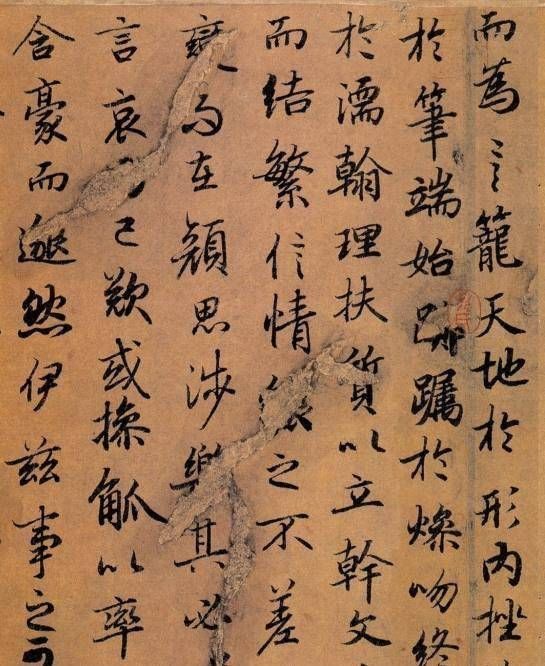 而為言籠天地於形內挫
於筆端始躑躅於燥吻終
於濡翰理扶質以立幹文
而結繁信情之不差
而在顏思涉樂其必
言哀已歎或操觚以率
含豪而邈然伊茲事之可